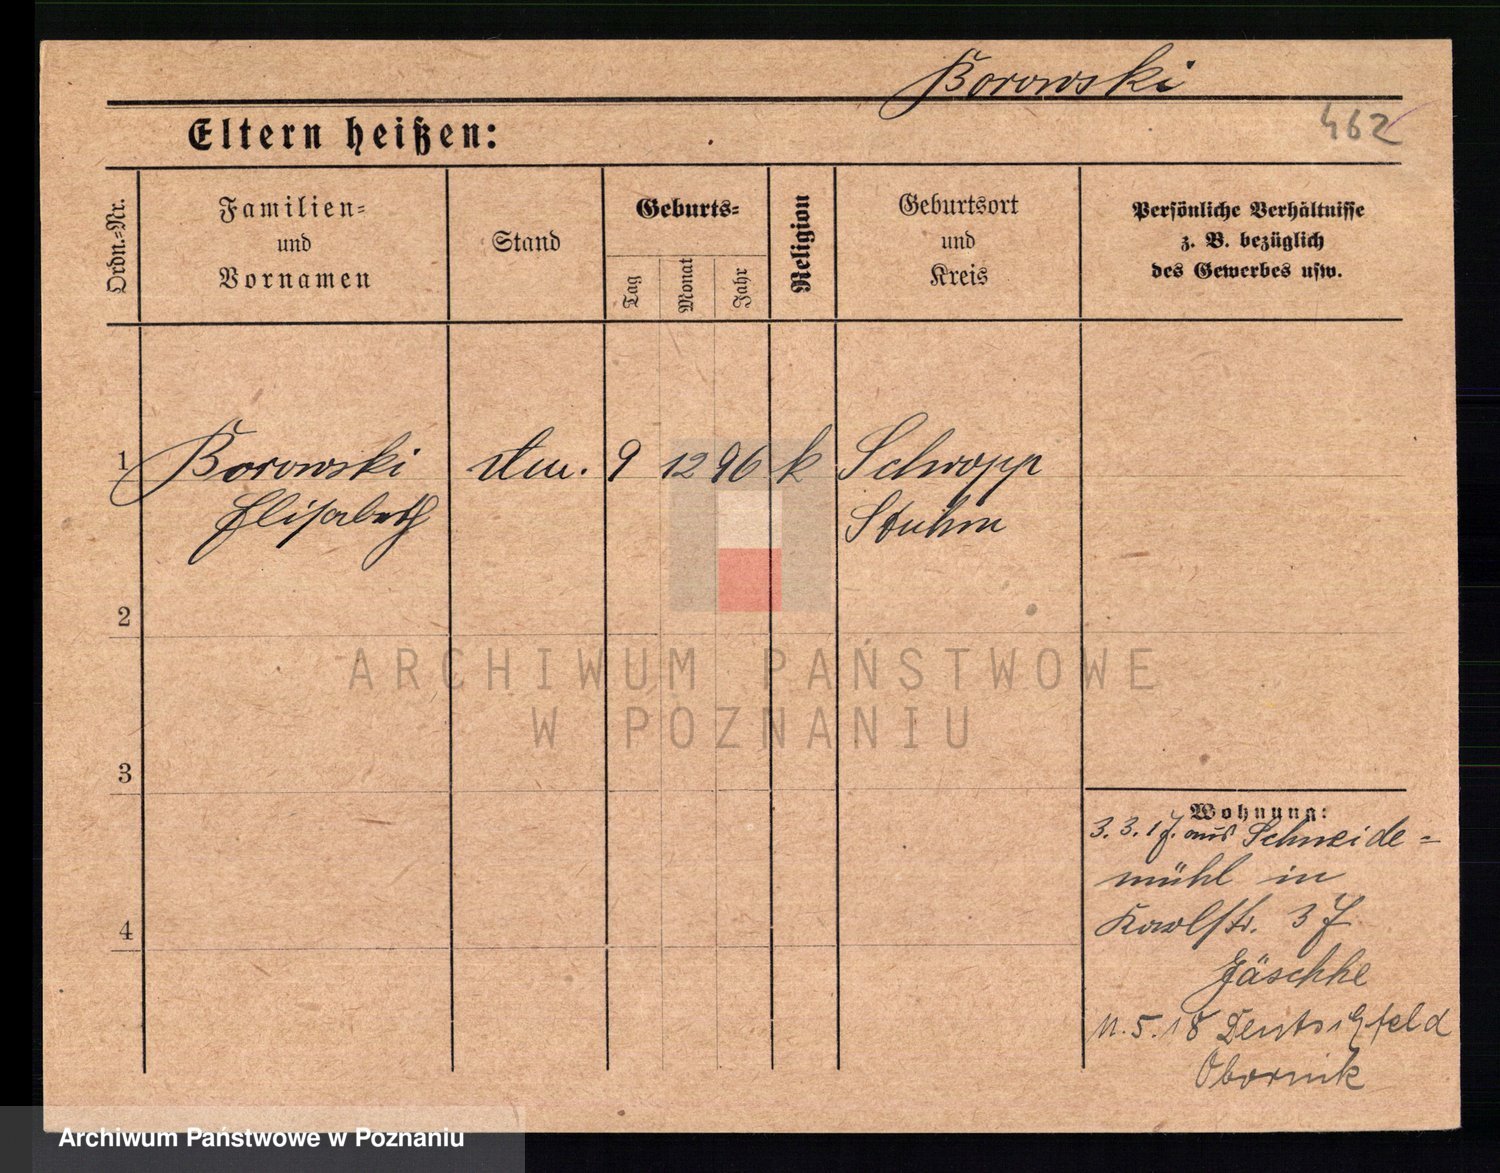 Borowski
462
Eltern heißen:
Ordn.=Nr.
Familien=
und
Vornamen
Stand
Geburts=
Tag
Monat
Jahr
Religion
Geburtsort
und
Kreis
Persönliche Verhältnisse
z. B. bezüglich
des Gewerbes usw.
1 Borowski 9 12 96 k Schropp
Elisabeth Stuhm
2
3
4
Wohnung:
3. 3. 17. aus Schneide=
mühl in
Karlstr. 37
Jäschke
11. 5. 18 Deutschfeld
Obornik
ARCHIWUM PAŃSTWOWE
W POZNANIU
Archiwum Państwowe w Poznaniu